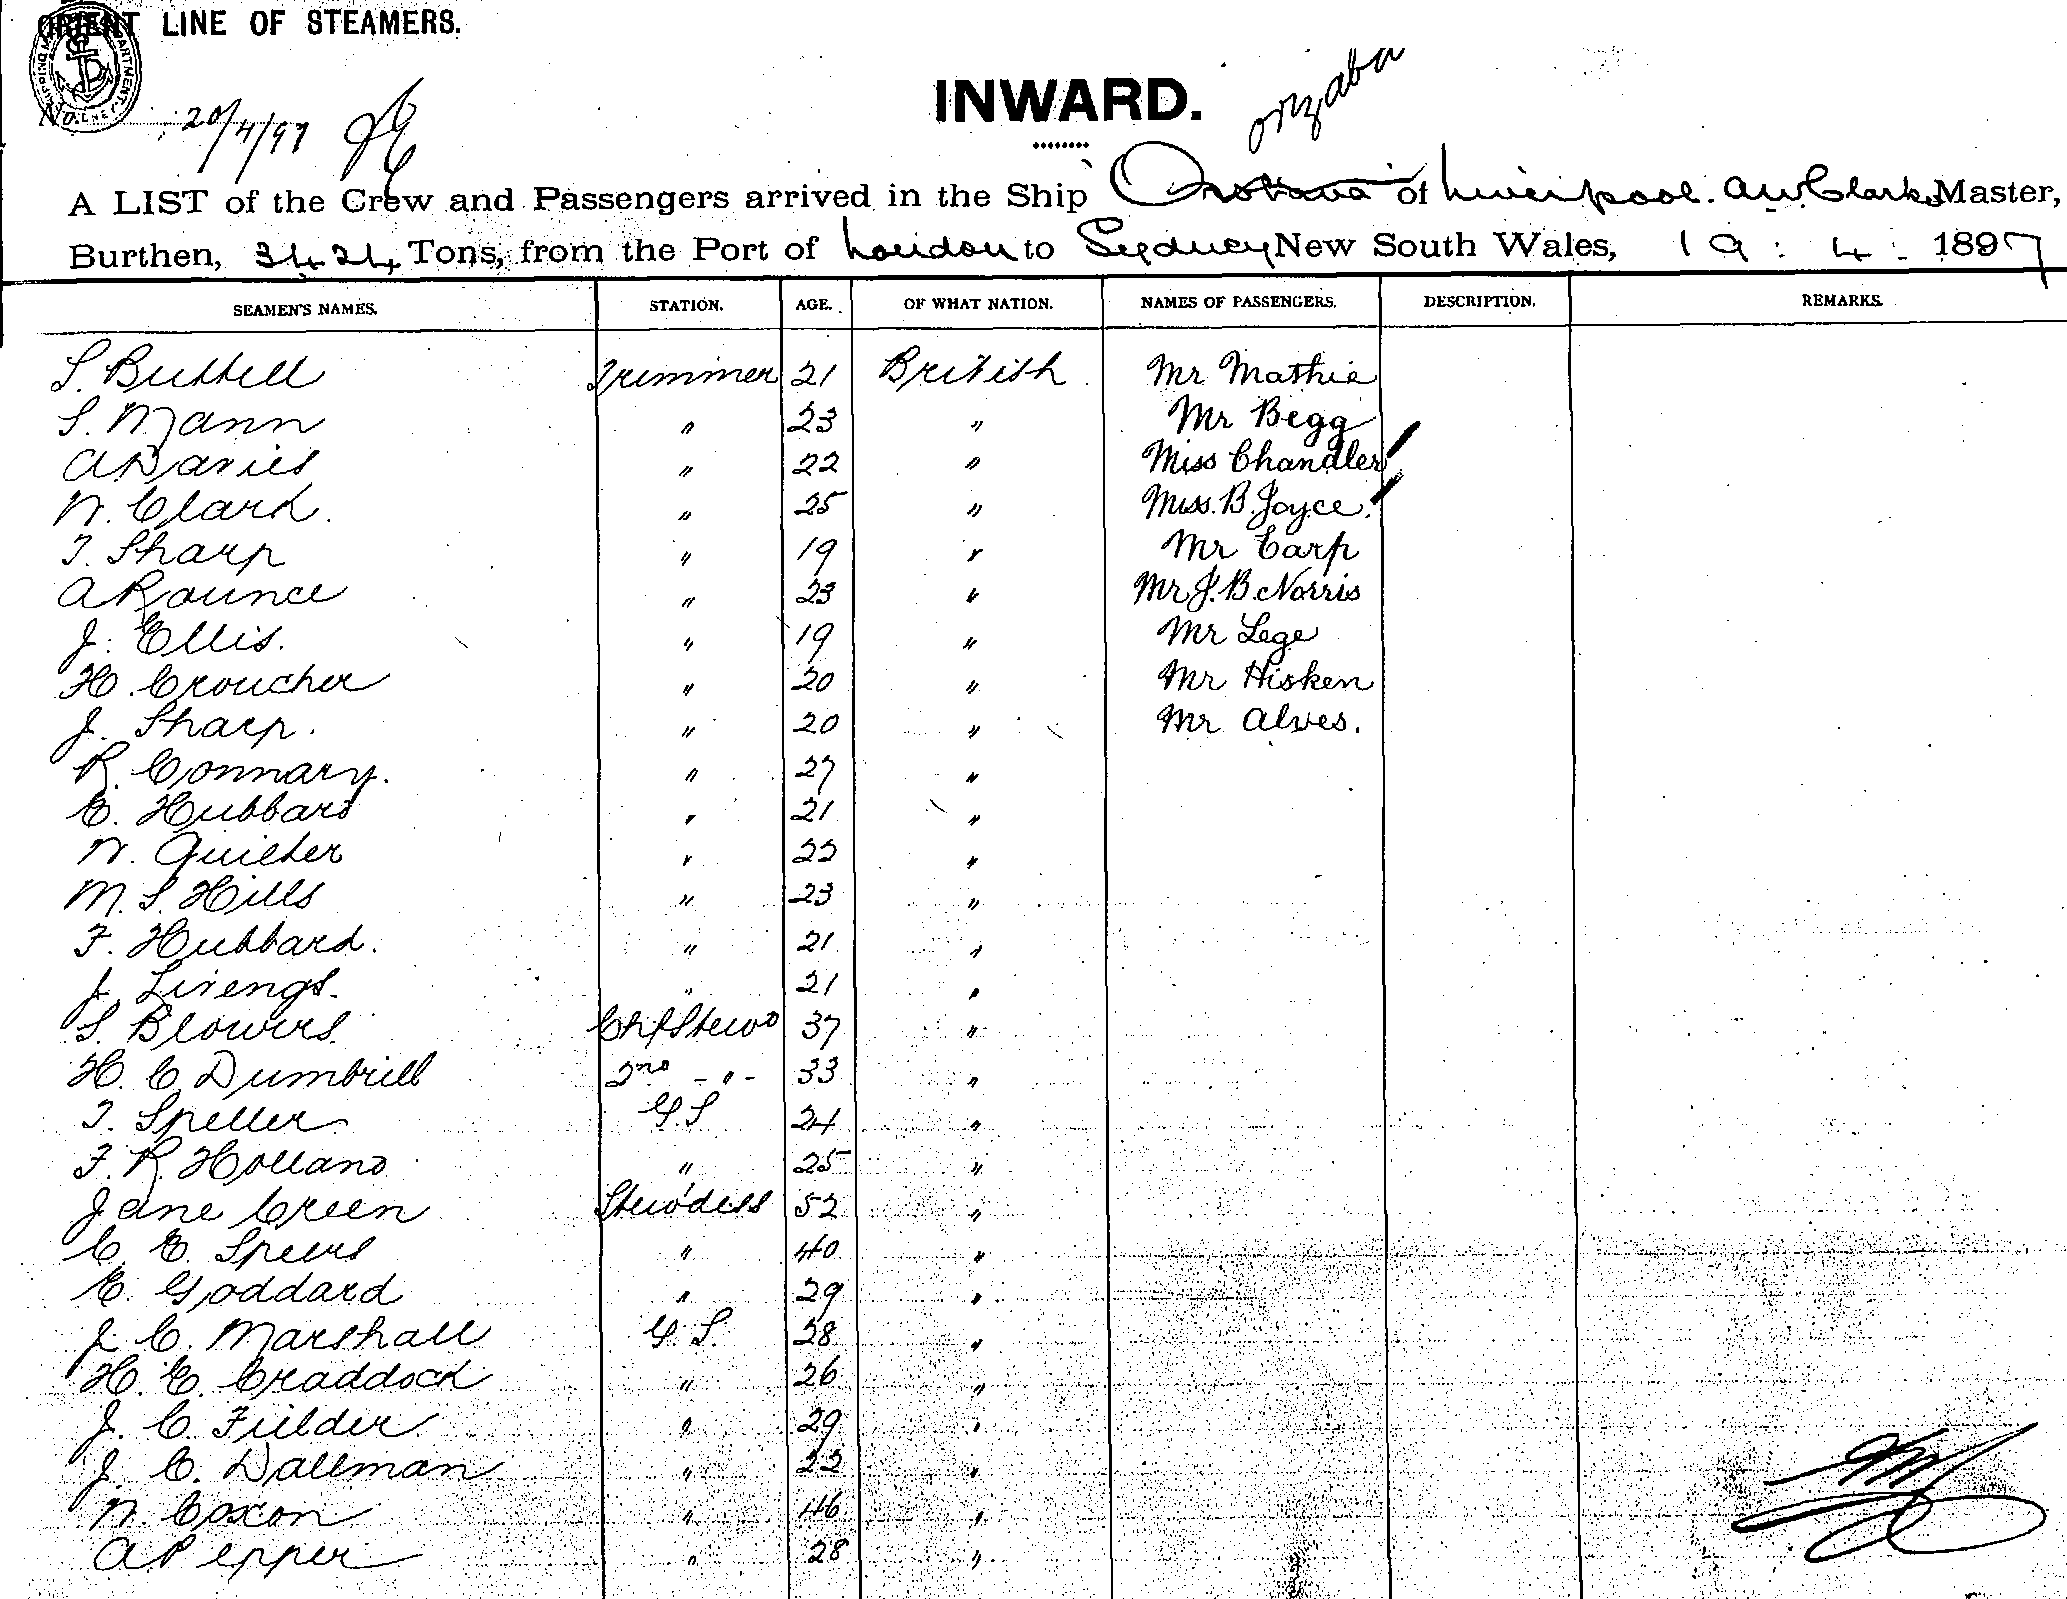 ORIENT LINE OF STEAMERS.
20/4/97
INWARD.
Orizaba
A LIST of the Crew and Passengers arrived in the Ship Orotava of Liverpool. A.W. Clarke Master,
Burthen, 3424 Tons, from the Port of London to Sydney New South Wales, 19 : 4 : 1897
SEAMEN'S NAMES. STATION. AGE. OF WHAT NATION. NAMES OF PASSENGERS. DESCRIPTION. REMARKS.
S. Buttell Trimmer 21 British Mr Mathie
S. Mann " 23 " Mr Begg
A Davies " 22 " Miss Chandler
W. Clark. " 25 " Miss. B. Joyce.
T. Sharp " 19 " Mr Carp
A Rounce " 23 " Mr J. B. Norris
J. Ellis. " 19 " Mr Lege
H. Croucher " 20 " Mr Hisken
J. Sharp. " 20 " Mr Alves.
R. Connary. " 27 "
E. Hubbard " 21 "
W. Quilter " 22 "
M. S. Hills " 23 "
F. Hubbard. " 21 "
J. Livengs. " 21 "
S. Blowers. Chf Stewd 37 "
H. C. Dumbrill 2nd - " - 33 "
T. Speller G.S 24 "
F. R. Holland " 25 "
Jane Green Stew'dess 52 "
C. E. Speers " 40 "
E. Goddard " 29 "
J. C. Marshall G. S. 28 "
H. E. Craddock " 26 "
J. C. Fielder " 29 "
J. C. Dallman " 22 "
W. Coxon " 46 "
A Pepper " 28 "